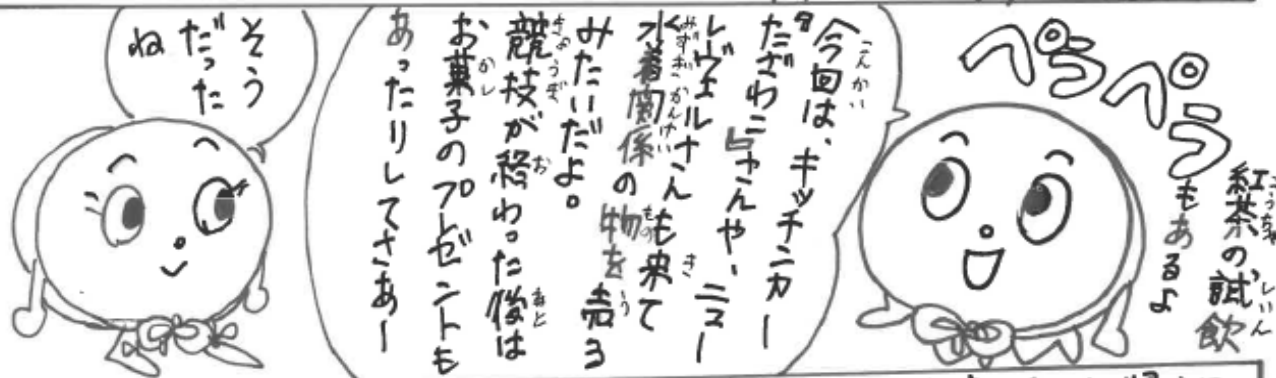 ペラペラ
紅茶の試飲
もあるよ
今回は、キッチンカー
たざわこ
さんや、ニュー
レヴェルさんも来て
水着関係の物を売る
みたいだよ。
競技が終わった後は
お菓子のプレゼントも
あったりしてさあー
そう
だった
ね